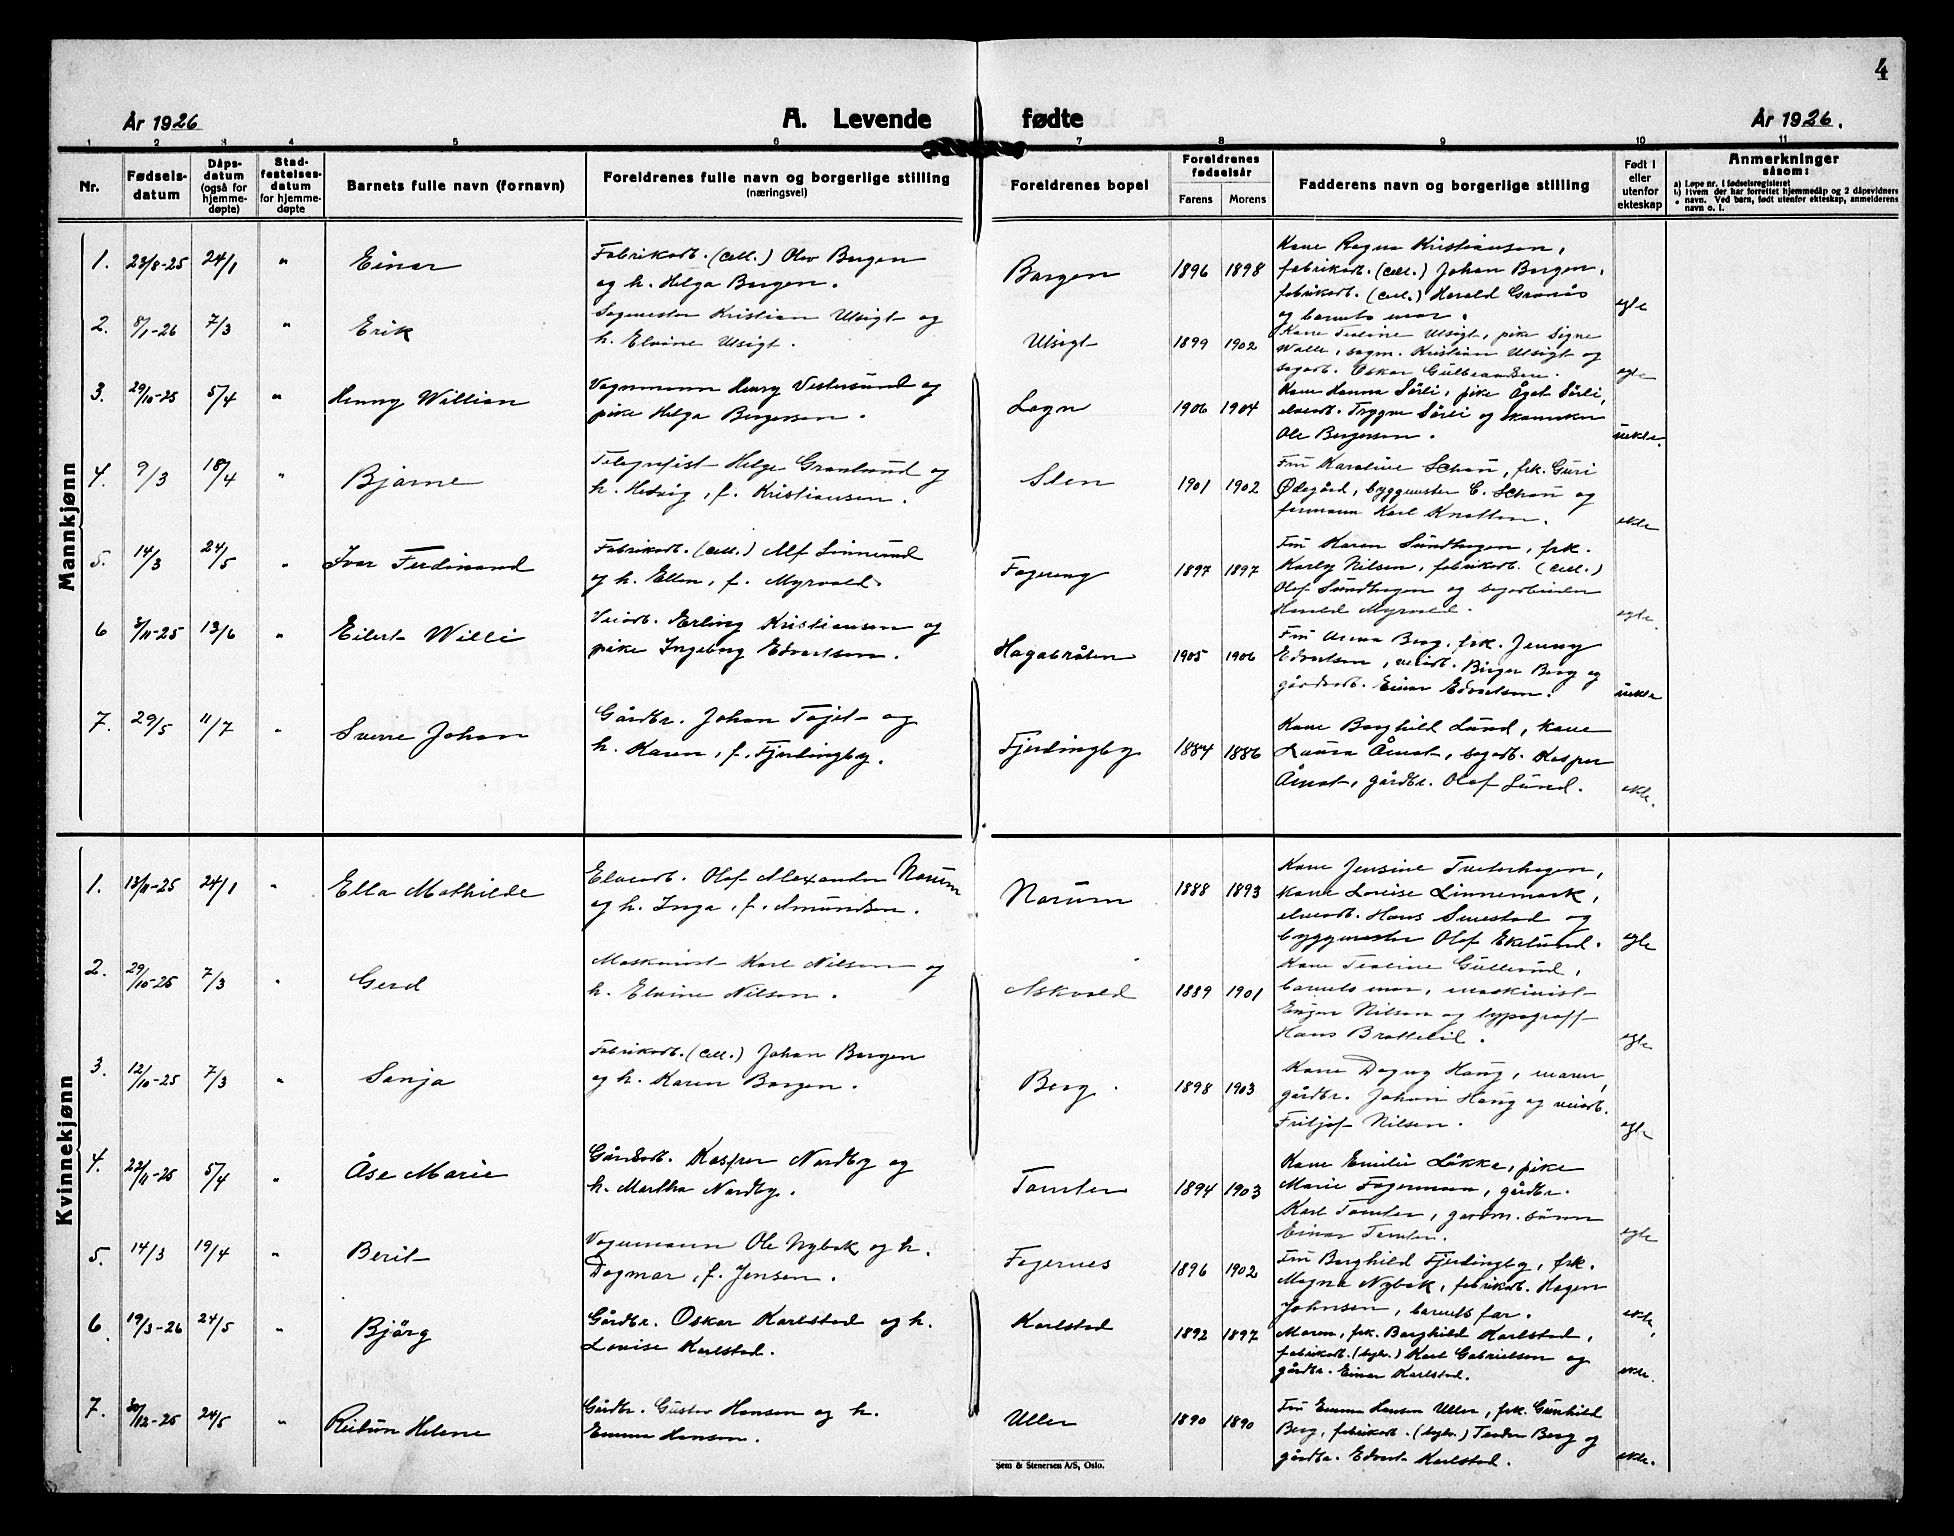 4
År 1926
A. Levende fødte
År 1926.
1 2 3 4 5 6 7 8 9 10 11
Nr.
Fødsels-
datum
Dåps-
datum
(også for
hjemme-
døpte)
Stad-
festelses-
datum
for hjemme-
døpte
Barnets fulle navn (fornavn)
Foreldrenes fulle navn og borgerlige stilling
(næringsvei)
Foreldrenes bopel
Foreldrenes
fødselsår
Farens Morens
Fadderens navn og borgerlige stilling
Født i
eller
utenfor
ekteskap
Anmerkninger
såsom:
a) Løpe nr. i fødselsregisteret
b) Hvem der har forrettet hjemmedåp og 2 dåpsvidners
navn. Ved barn, født utenfor ekteskap, anmelderens
navn o. l.
Mannkjønn
1. 23/8-25 24/1 " Einar
Fabrikarb. (Cell.) Olav Borgen
og h. Helga Borgen.
Borgen 1896 1898
Kone Ragna Kristiansen,
fabrikarb. (Cell.) Johan Borgen,
fabrikarb. (Cell.) Harald Granås
og barnets mor.
egte
2. 8/1-26 7/3 " Erik
Sagmester Kristian Utsigt og
h. Elvine Utsigt.
Utsigt 1899 1902
Kone Teoline Utsigt, pike Signe
Walle, sagm. Kristian Utsigt og
sagarb. Oskar Gulbrandsen.
egte
3. 29/10-25 5/4 " Henny Willian
Vognmann Henry Vestersund og
pike Helga Borgersen.
Logn 1906 1904
Kone Hanna Sörli, pike Ågot Sörli,
elvearb. Trygve Sörli og skomaker
Ole Borgersen.
uekte.
4. 9/3 18/4 " Bjarne
Telegrafist Helge Granlund og
h. Hedvig, f. Kristiansen.
Sten 1901 1902
Fru Karoline Schau, frk. Guri
Ødegård, byggmester C. Schau og
formann Karl Knatten.
ekte
5. 14/3 24/5 " Ivar Ferdinand
Fabrikarb. (Cell.) Alf Linnerud
og h. Ellen, f. Myrvold.
Fagereng 1897 1897
Fru Karen Sundhagen, frk.
Karly Nilsen, fabrikarb. (Cell.)
Olof Sundhagen og sagarbeider
Harald Myrvold.
egte.
6 3/11-25 13/6 " Eilert Willi
Veiarb. Erling Kristiansen og
pike Ingeborg Edvartsen.
Hagabråten 1905 1906
Fru Anna Berg, frk. Jenny
Edvartsen, veiarb. Birger Berg og
gårdsarb. Einar Edvartsen.
uekte
7. 29/5 11/7 " Sverre Johan
Gårdbr. Johan Tajet og
h. Karen, f. Fjerdingby.
Fjerdingby 1884 1886
Kone Borghild Lund, kone
Laura Åmot, sagarb. Kasper
Åmot, gårdbr. Olof Lund.
ekte.
Kvinnekjønn
1. 13/11-25 24/1 " Ella Mathilde
Elvearb. Olof Alexander Norum
og h. Inga, f. Amundsen.
Norum 1888 1893
Kone Jensine Tveterhagen,
kone Lovise Linnemark,
elvearb. Hans Smestad og
byggmester Olof Ekelund.
egte
2. 29/10-25 7/3 " Gerd
Maskinist Karl Nilsen og
h. Elvine Nilsen.
Askvold 1889 1901
Kone Teoline Gullerud,
barnets mor, maskinist
Nilsen og typograff
Hans Bratteli.
egte
3. 12/10-25 7/3 " Sonja
Fabrikarb. (Cell.) Johan Borgen
og h. Karen Borgen.
Berg. 1898 1903
Kone Dagny Haug, moren,
gårdbr. Johan Haug og veiarb.
Fritjof Nilsen.
egte
4. 22/11-25 5/4 " Åse Marie
Gårdsarb. Kasper Nordby og
h. Martha Nordby.
Tomter 1894 1903
Kone Emilie Lökka, pike
Marie Fagermoen, gårdbr.
Karl Tomter, gårdm. sönn
Einar Tomter.
egte
5. 14/3 19/4 " Berit
Vognmann Ole Nybak og h.
Dagmar, f. Jensen.
Fagernes 1896 1902
Fru Borghild Fjerdingby, frk.
Magna Nybak, fabrikarb. Hagen
Johnsen, barnets far.
ekte,
6. 19/3-26 24/5 " Björg
Gårdbr. Oskar Karlstad og h.
Lovise Karlstad.
Karlstad 1892 1897
Moren, frk. Borghild Karlstad,
fabrikarb. Karl Gabrielsen og
gårdbr. Einar Karlstad.
ekte.
7. 30/12-25 24/5 " Reidun Helene
Gårdbr. Gustav Hansen og h.
Emma Hansen.
Uller 1890 1890
Fru Emma Hansen Uller, frk. Gunhild
Berg, fabrikarb. Teodor Berg og
gårdbr. Edvart Karlstad.
ekte.
Sem & Stenersen A/S, Oslo.